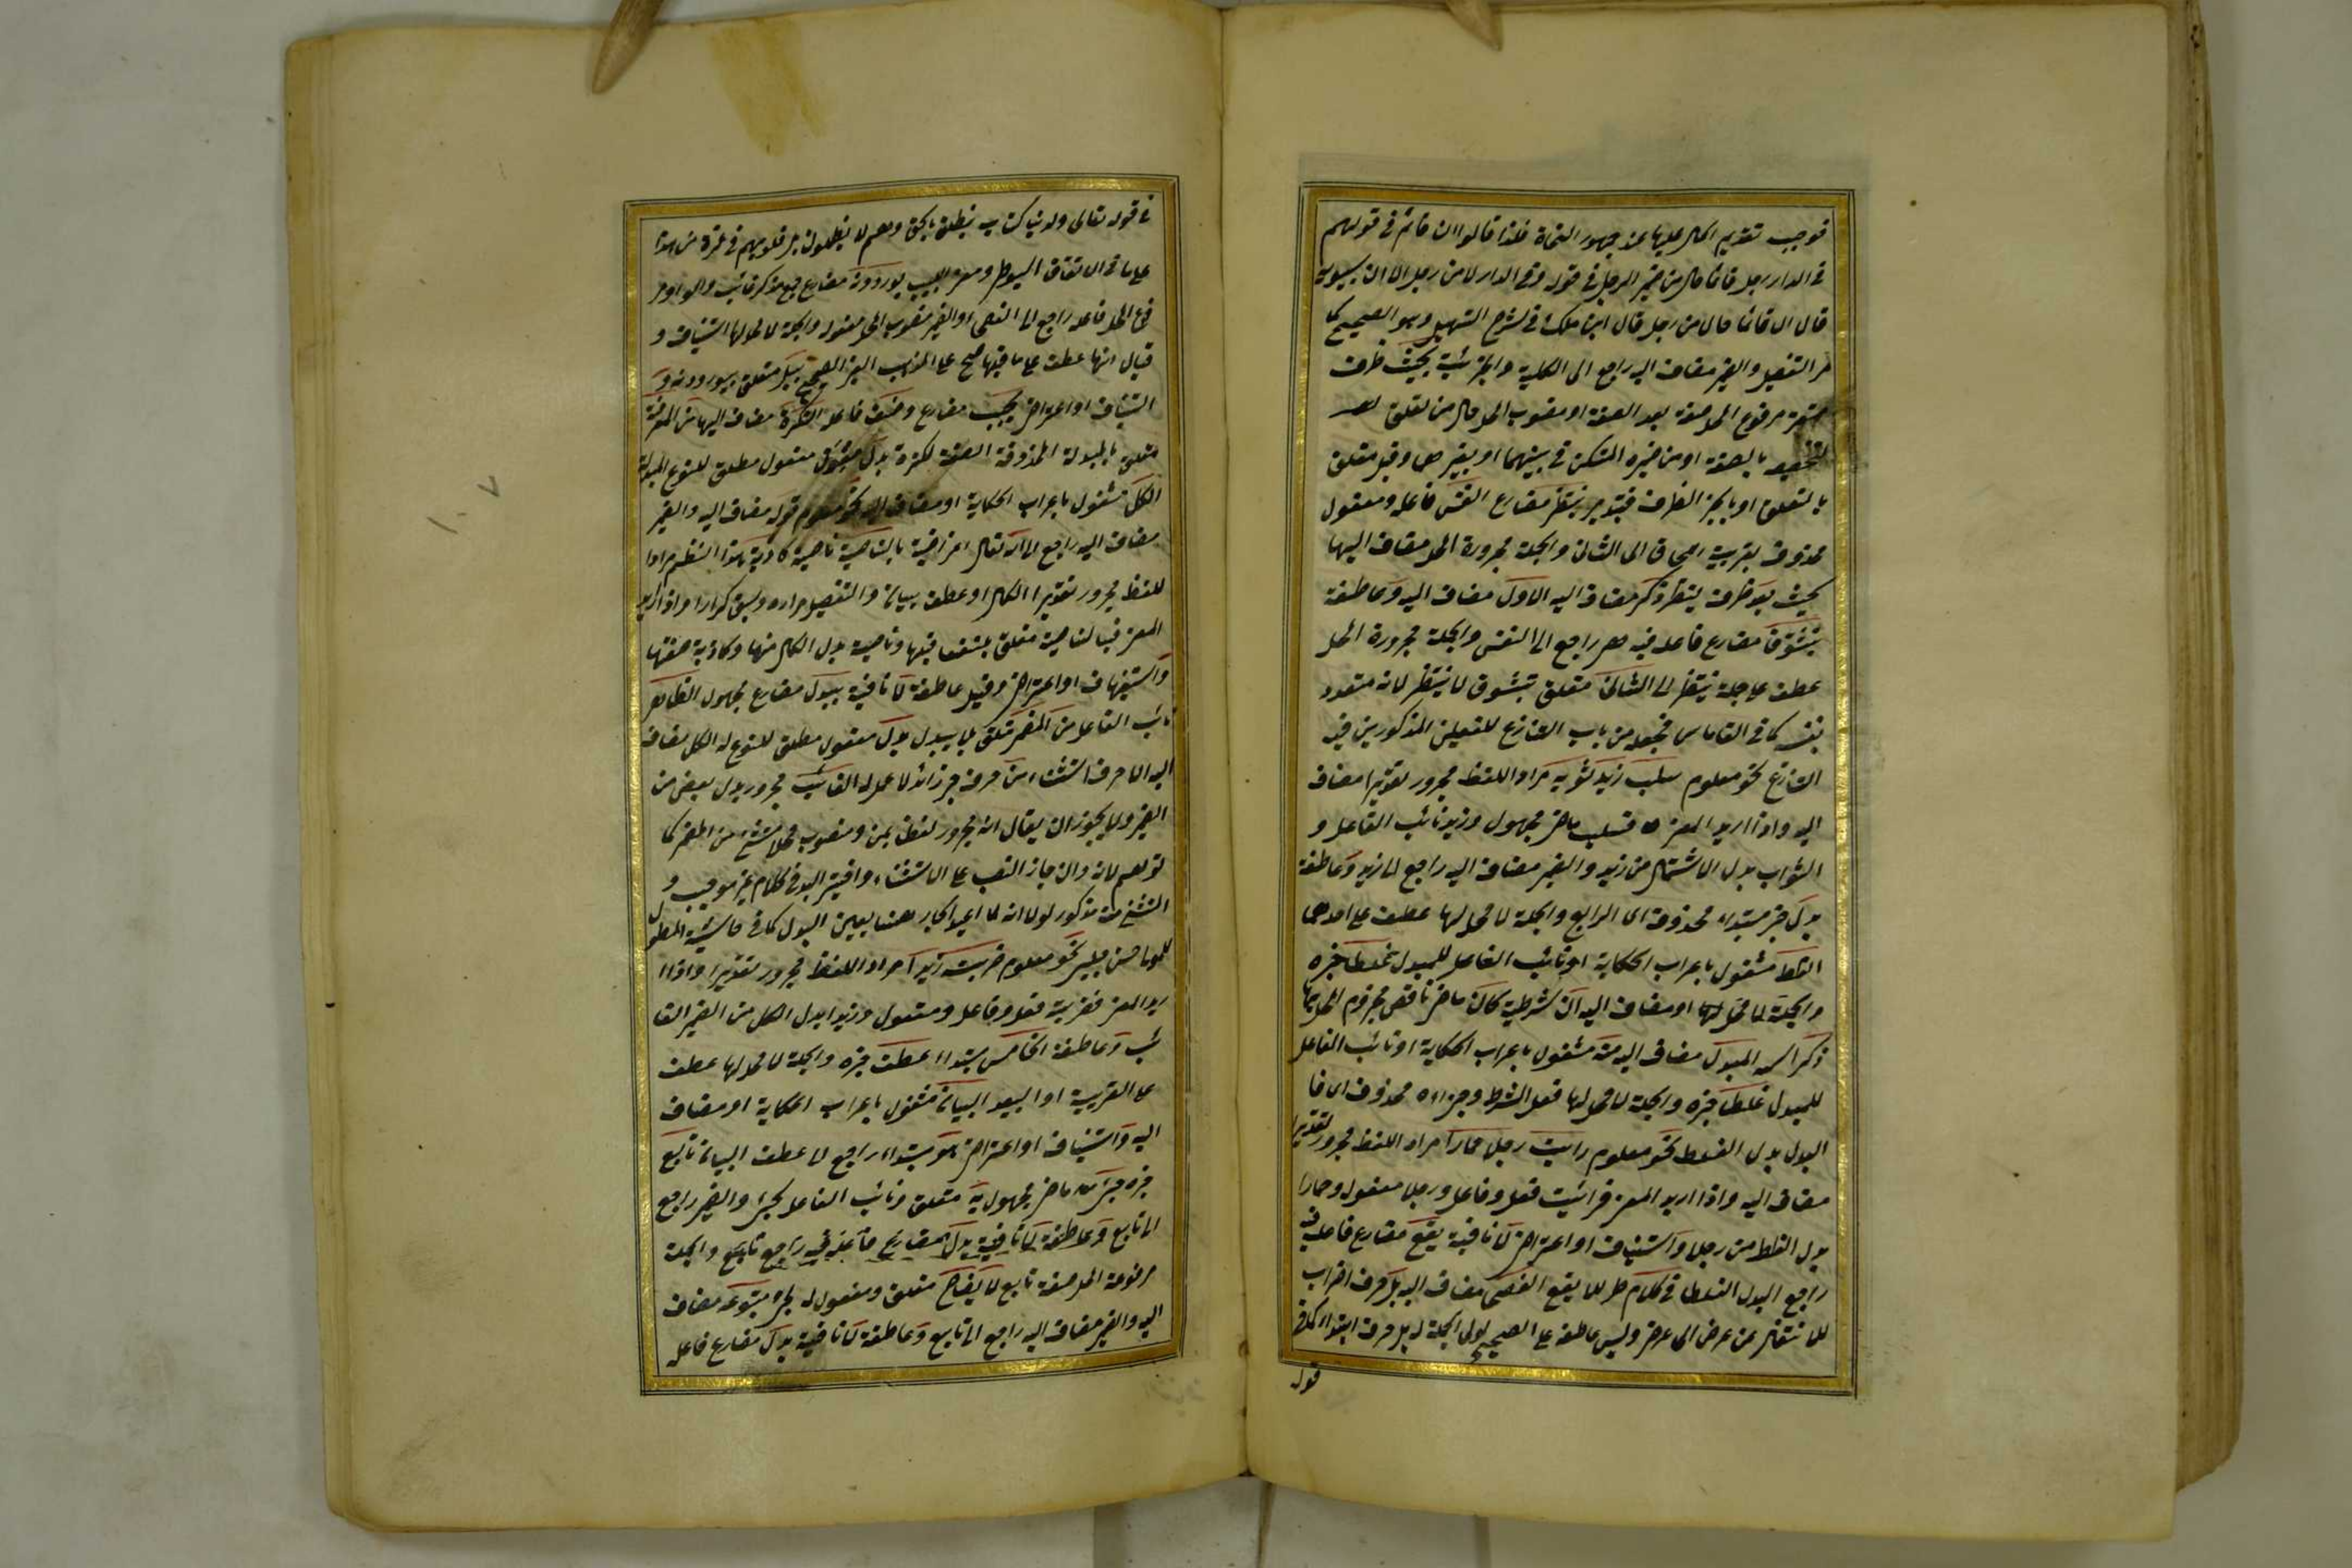 فوجب تقديم الحال عليها عند جمهور النحاة فلذا قالوا ان قائم في قولهم
في الدار رجل قائما حال من ضمير الرجل في قوله وفي الدار لا من رجل الا ان سيبويه
قال ان قائما حال من رجل قال ابن ملك في شرح التسهيل وهو الصحيح كما
مر التفصيل والضمير مضاف اليه راجع الى الكلية والجزئية بحيث ظرف
مستقر مرفوع المحل صفة بعد الصفة او منصوب المحل حال من تعلق
بالصفة او من ضميره المستكن في بينهما او بغيرهما وقيل متعلق
بالتعلق او بالجر الظرف فتدبر ينتظر مضارع النفس فاعله ومفعول
محذوف بقرينة الى الثاني والجملة مجرورة المحل مضاف اليها
لحيث بعد ظرف لينتظر ذكر مضاف اليه الاول مضاف اليه وعاطفة
تتشوق مضارع فاعله فيه هي راجع الى النفس والجملة مجرورة المحل
عطف على جملة ينتظر الى الثاني متعلق بتشوق لا ينتظر لانه متعدد
بنفسه كما في القاموس فجعله من باب التنازع للفعلين المذكورين فيه
التنازع نحو معلوم سلب زيد ثوبه مراد اللفظ مجرور تقديرا مضاف
اليه واذا اريد المعنى فسلب ماض مجهول وزيد نائب الفاعل و
الثواب بدل الاشتمال من زيد والضمير مضاف اليه راجع الى زيد وعاطفة
بدل خبر مبتداء محذوف اى الرابع والجملة لا محل لها عطف على احدهما
الغلط مشغول باعراب الحكاية او نائب الفاعل للمبدل غلطا خبره
والجملة لا محل لها او مضاف اليه ان شرطية كان ماض ناقص مجزوم المحل بها
ذكر اسمه المبدل مضاف اليه منه مشغول باعراب الحكاية او نائب الفاعل
للمبدل غلطا خبره والجملة لا محل لها فعل الشرط وجزاءه محذوف اى فا
لبدل بدل الغلط نحو معلوم رايت رجلا حمارا مراد اللفظ مجرور تقديرا
مضاف اليه واذا اريد المعنى فرأيت فعل وفاعل ورجلا مفعول وحمارا
بدل الغلط من رجلا واستيناف او اعتراض لا نافية يقع مضارع فاعله فيه
راجع البدل الغلط في كلام ظرف لا يقع الفصحى مضاف اليه بل حرف اضراب
للانتقال من غرض الى غرض وليس عاطفة على الصحيح لولى الجملة له بل حرف ابتداء كما في
قوله
في قوله تعالى ولدينا كتاب ينطق بالحق وهم لا يظلمون بل قلوبهم في غمرة من هذا
على ما في الاتقان السيوطى ومغنى اللبيب يوردونه مضارع جمع مذكر غائب والواو مر
فوع المحل فاعله راجع الى الفصحى او الضمير منصوب المحل مفعوله والجملة لا محل لها استيناف و
قيل انها عطف على ما قبلها صح على المذهب الغير الصحيح ببل متعلق بيوردونه و
استيناف او اعتراض يجب مضارع وصف فاعله النكرة مضاف اليها من المعرفة
متعلق بالمبدلة المحذوفة الصفة لنكرة بدل مفعول مطلق للنوع المبدلة
الكل مشغول باعراب الحكاية او مضاف اليه نحو معلوم قوله مضاف اليه والضمير
مضاف اليه راجع الى الله تعالى اعتراضية بالناصية ناصية كاذبة هذا النظم مراد ا
للفظ مجرور تقديرا الكل او عطف بيان والتفصيل مراده وسبق كرارا واذا اريد
المعنى فبالناصية متعلق بلنسفعا قبلها وناصية بدل الكل منها وكاذبة صفتها
واستيناف او اعتراض وقيل عاطفة لا نافية يبدل مضارع مجهول الظاهر
نائب الفاعل من المضمر متعلق بلا يبدل بدل مفعول مطلق للنوع له الكل مضاف
اليه الا حرف استثناء من حرف جر زائد لا عمل له الغائب مجرور بدل بعض من
الضمير ولا يجوز ان يقال انه مجرور لفظا بمن ومنصوب محلا مستثنى من المضمر كما
توهم لانه وان جاز النصب على الاستثناء واختير البدل في كلام غير موجب و
المستثنى منه مذكور لولا انه لما اعيد الجار هنا يعين البدل كما في حاشية المطول
للمولى حسن چلبى نحو معلوم ضربته زيدا مراد اللفظ مجرور تقديرا واذا ا
ريد المعنى فضربته فعل وفاعل ومفعول وزيدا بدل الكل من الضمير الغا
ئب وعاطفة الخامس مبتداء عطف خبره والجملة لا محل لها عطف
على القريبة او البعيد البيان مشغول باعراب الحكاية او مضاف
اليه واستيناف او اعتراض هو مبتداء راجع الى عطف البيان تابع
خبره جىء ماض مجهول به متعلق ونائب الفاعل لجىء والضمير راجع
الى تابع وعاطفة لا نافية يدل مضارع فاعله فيه راجع تابع والجملة
مرفوعة المحل صفة تابع لايضاح متعلق ومفعول له لجىء متبوعه مضاف
اليه والضمير مضاف اليه راجع الى تابع وعاطفة لا نافية يدل مضارع فاعله